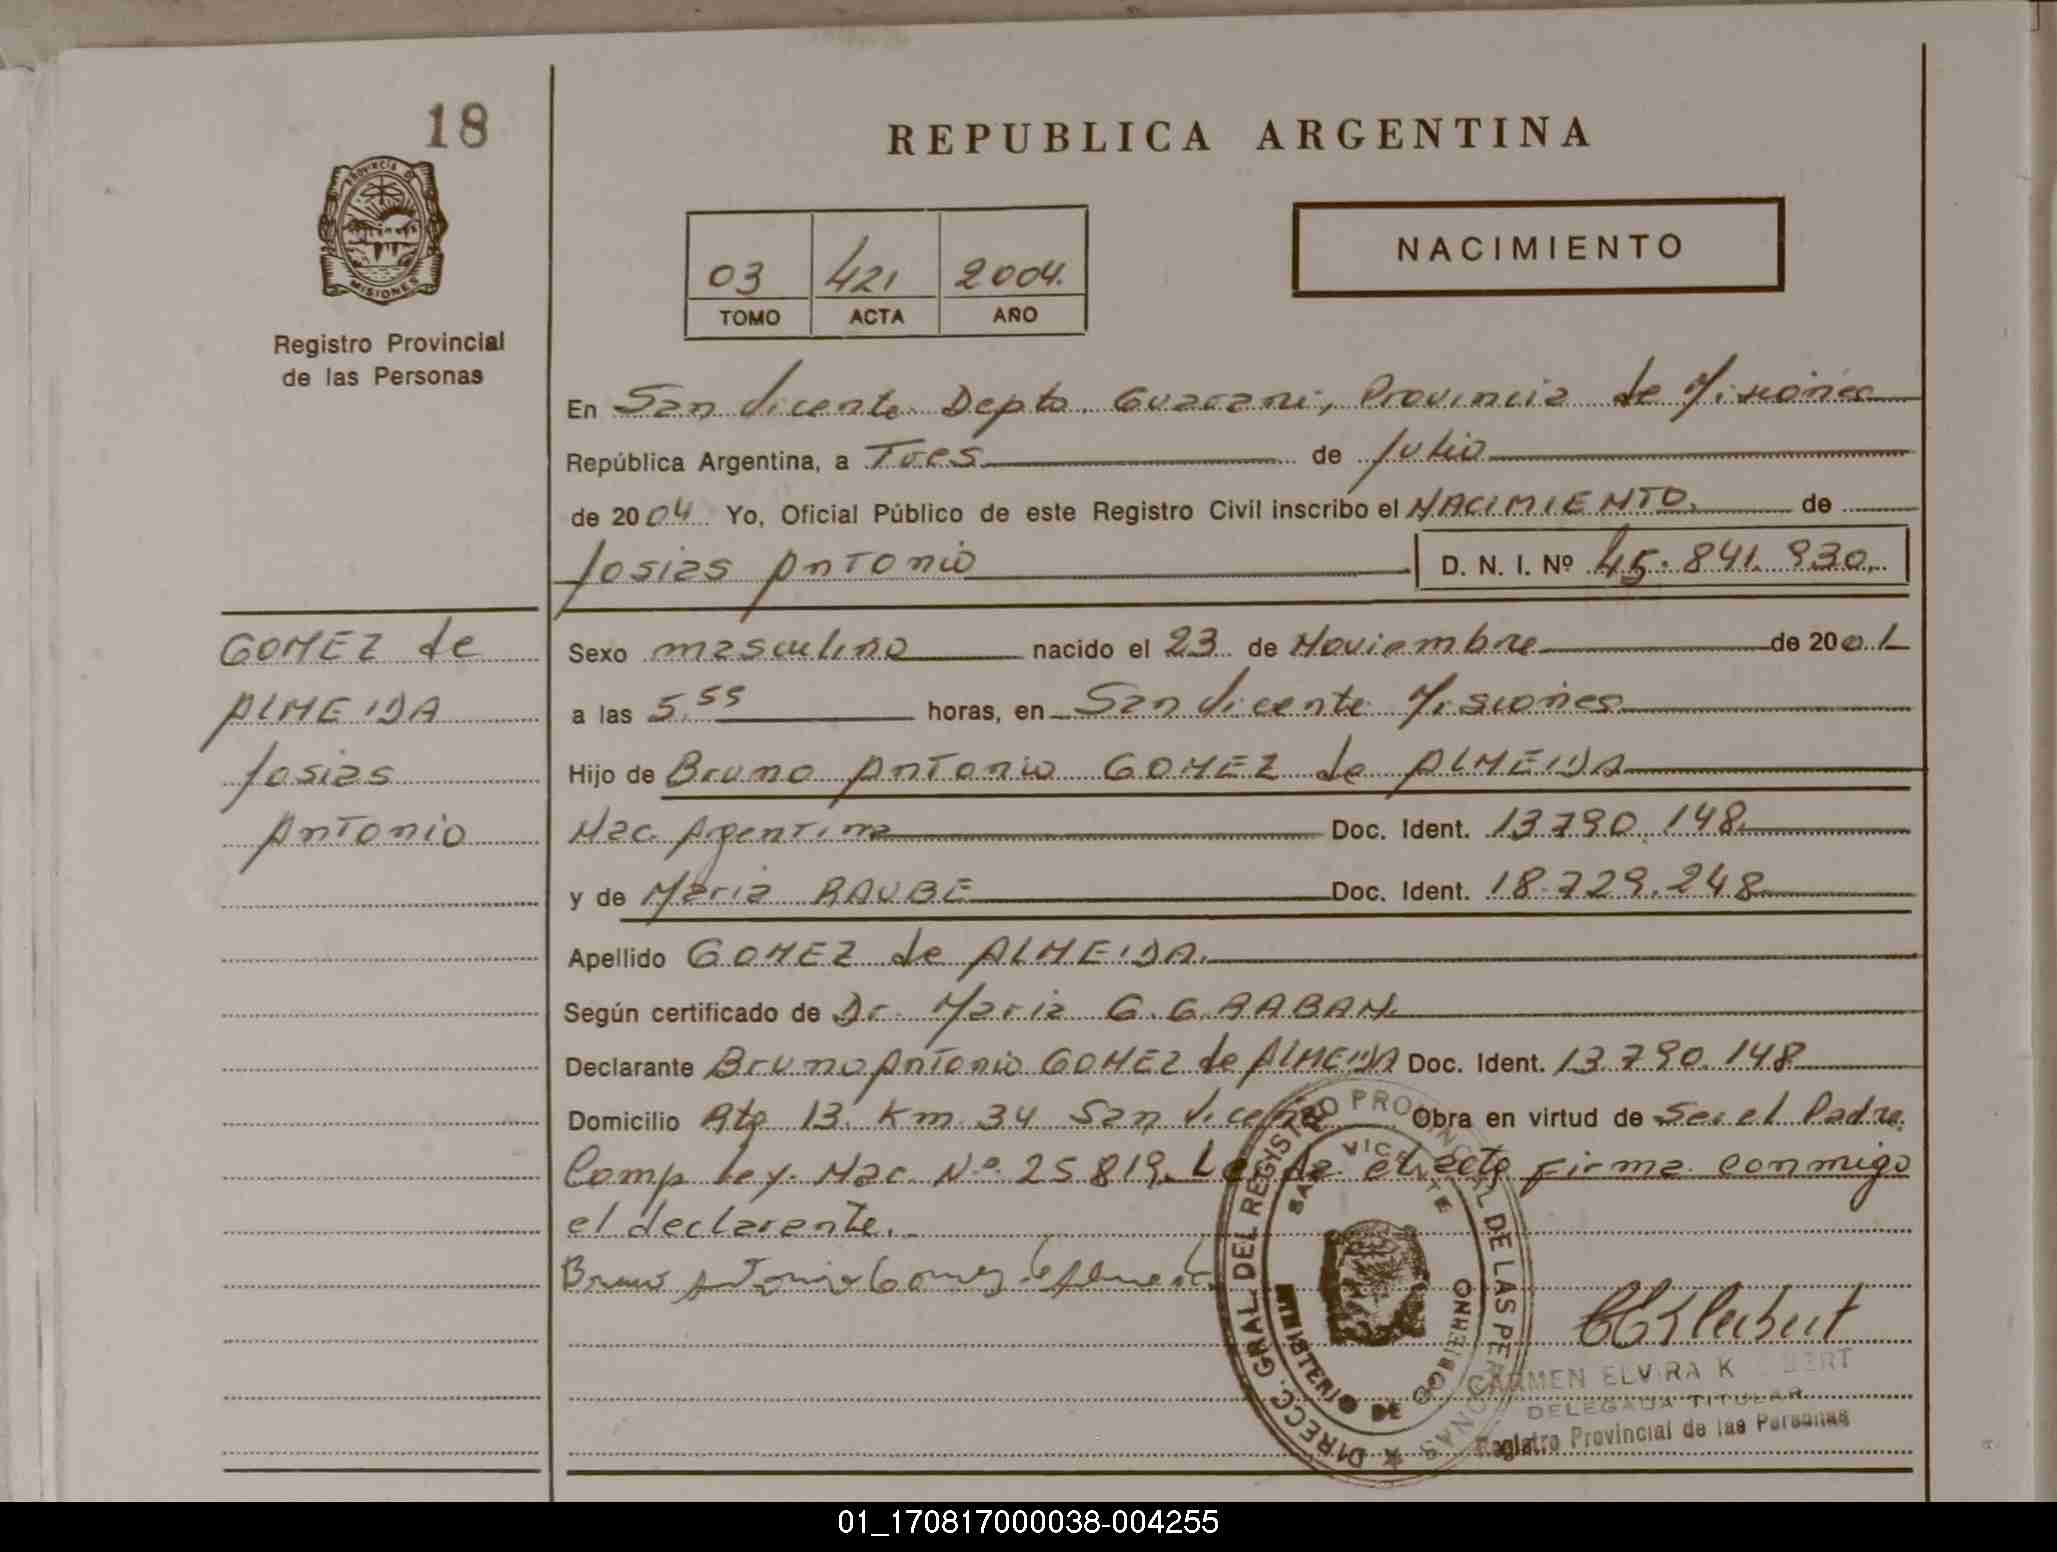 18
REPUBLICA ARGENTINA
PROVINCIA DE
MISIONES
Registro Provincial
de las Personas
03 421 2004.
TOMO ACTA AÑO
NACIMIENTO
En San Vicente Depto. Guarani, Provincia de Misiones
República Argentina, a Tres de Julio
de 2004 Yo, Oficial Público de este Registro Civil inscribo el NACIMIENTO. de
Josias Antonio D. N. I. Nº 45.841.930.
GOMEZ de
ALMEIDA
Josias
Antonio
Sexo masculino nacido el 23 de Noviembre de 2001
a las 5,55 horas, en San Vicente Misiones
Hijo de Bruno Antonio GOMEZ de ALMEIDA
Nac. Argentina Doc. Ident. 13.790.148
y de Maria RAUBE Doc. Ident. 18.729.248
Apellido GOMEZ de ALMEIDA.
Según certificado de Dr. Maria G. G. RABAN.
Declarante Bruno Antonio GOMEZ de ALMEIDA Doc. Ident. 13.790.148
Domicilio Rta 13. Km 34 San Vicente Obra en virtud de Ser el Padre.
Comp Ley. Nac. Nº 25.819. Leida el acta firma conmigo
el declarante.
Bruno Antonio Gomez de Almeida
DIRECC. GRAL. DEL REGISTRO PROVINCIAL DE LAS PERSONAS
SAN VICENTE
MINISTERIO DE GOBIERNO
CARMEN ELVIRA
DELEGADA TITULAR
Registro Provincial de las Personas
01_170817000038-004255